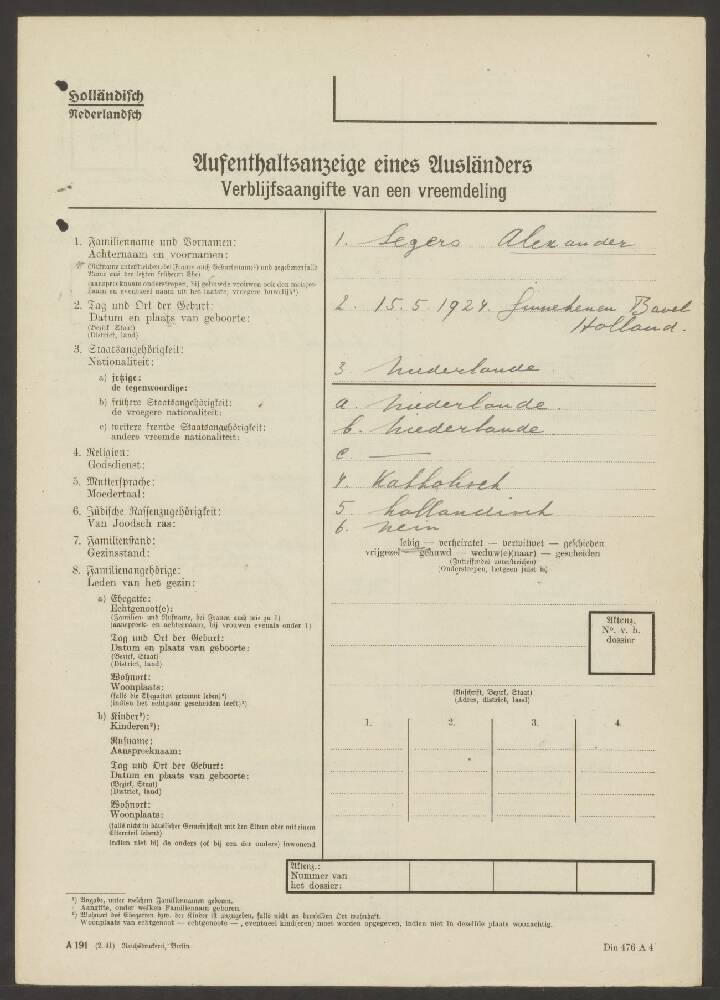 Holländisch
Nederlandsch
Aufenthaltsanzeige eines Ausländers
Verblijfsaangifte van een vreemdeling
1. Familienname und Vornamen:
Achternaam en voornamen:
1. Segers Alexander
2. Tag und Ort der Geburt:
Datum en plaats van geboorte:
(Bezirk, Staat)
(District, land)
2. 15.5.1924. Ginneken en Bavel
Holland.
3. Staatsangehörigkeit:
Nationaliteit:
3 Niederlande
a) jetzige:
de tegenwoordige:
a. Niederlande.
b) frühere Staatsangehörigkeit:
de vroegere nationaliteit:
b. Niederlande
c) weitere fremde Staatsangehörigkeit:
andere vreemde nationaliteit:
c. —
4. Religion:
Godsdienst:
4. Katholisch
5. Muttersprache:
Moedertaal:
5. holländisch
6. Jüdische Rassenzugehörigkeit:
Van Joodsch ras:
6. nein
7. Familienstand:
Gezinsstand:
ledig — verheiratet — verwitwet — geschieden
vrijgezel — gehuwd — weduw(e)(naar) — gescheiden
(Zutreffendes unterstreichen)
(Onderstrepen, hetgeen juist is)
8. Familienangehörige:
Leden van het gezin:
a) Ehegatte:
Echtgenoot(e):
(Familien- und Rufname, bei Frauen auch wie zu 1)
(aanspreek- en achternaam, bij vrouwen evenals onder 1)
Tag und Ort der Geburt:
Datum en plaats van geboorte:
(Bezirk, Staat)
(District, land)
Aktenz.
No. v. h.
dossier
Wohnort:
Woonplaats:
(falls die Ehegatten getrennt leben)²)
(indien het echtpaar gescheiden leeft)²)
(Anschrift, Bezirk, Staat)
(Adres, district, land)
b) Kinder²):
Kinderen²):
1. 2. 3. 4.
Rufname:
Aanspreeknaam:
Tag und Ort der Geburt:
Datum en plaats van geboorte:
(Bezirk, Staat)
(District, land)
Wohnort:
Woonplaats:
(falls nicht in häuslicher Gemeinschaft mit den Eltern oder mit einem
Elternteil lebend)
indien niet bij de ouders (of bij een der ouders) inwonend
Aktenz.:
Nummer van
het dossier:
¹) Angabe, unter welchem Familiennamen geboren.
Aangifte, onder welken Familienaam geboren.
²) Wohnort des Ehegatten bzw. der Kinder ist anzugeben, falls nicht an demselben Ort wohnhaft.
Woonplaats van echtgenoot — echtgenoote —, eventueel kind(eren) moet worden opgegeven, indien niet in dezelfde plaats woonachtig.
A 191 (2. 41) Reichsdruckerei, Berlin
Din 476 A 4